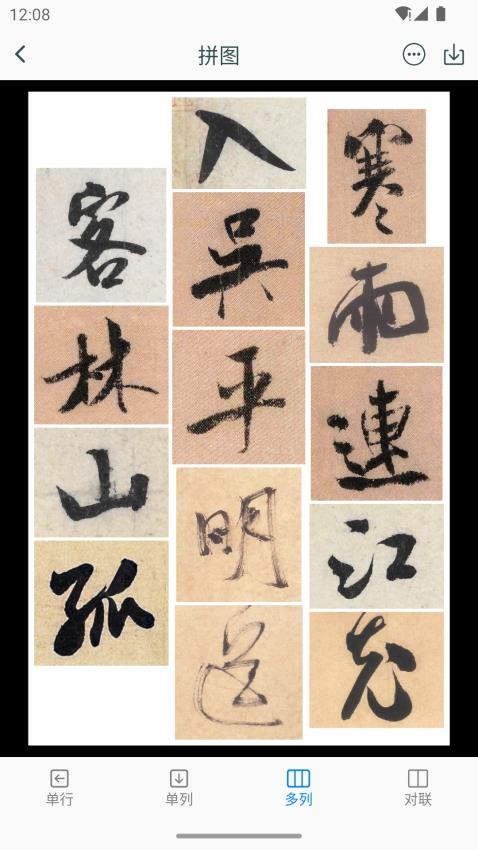 12:08
拼图
寒雨連江
入吳平明
客林山孤
单行
单列
多列
对联